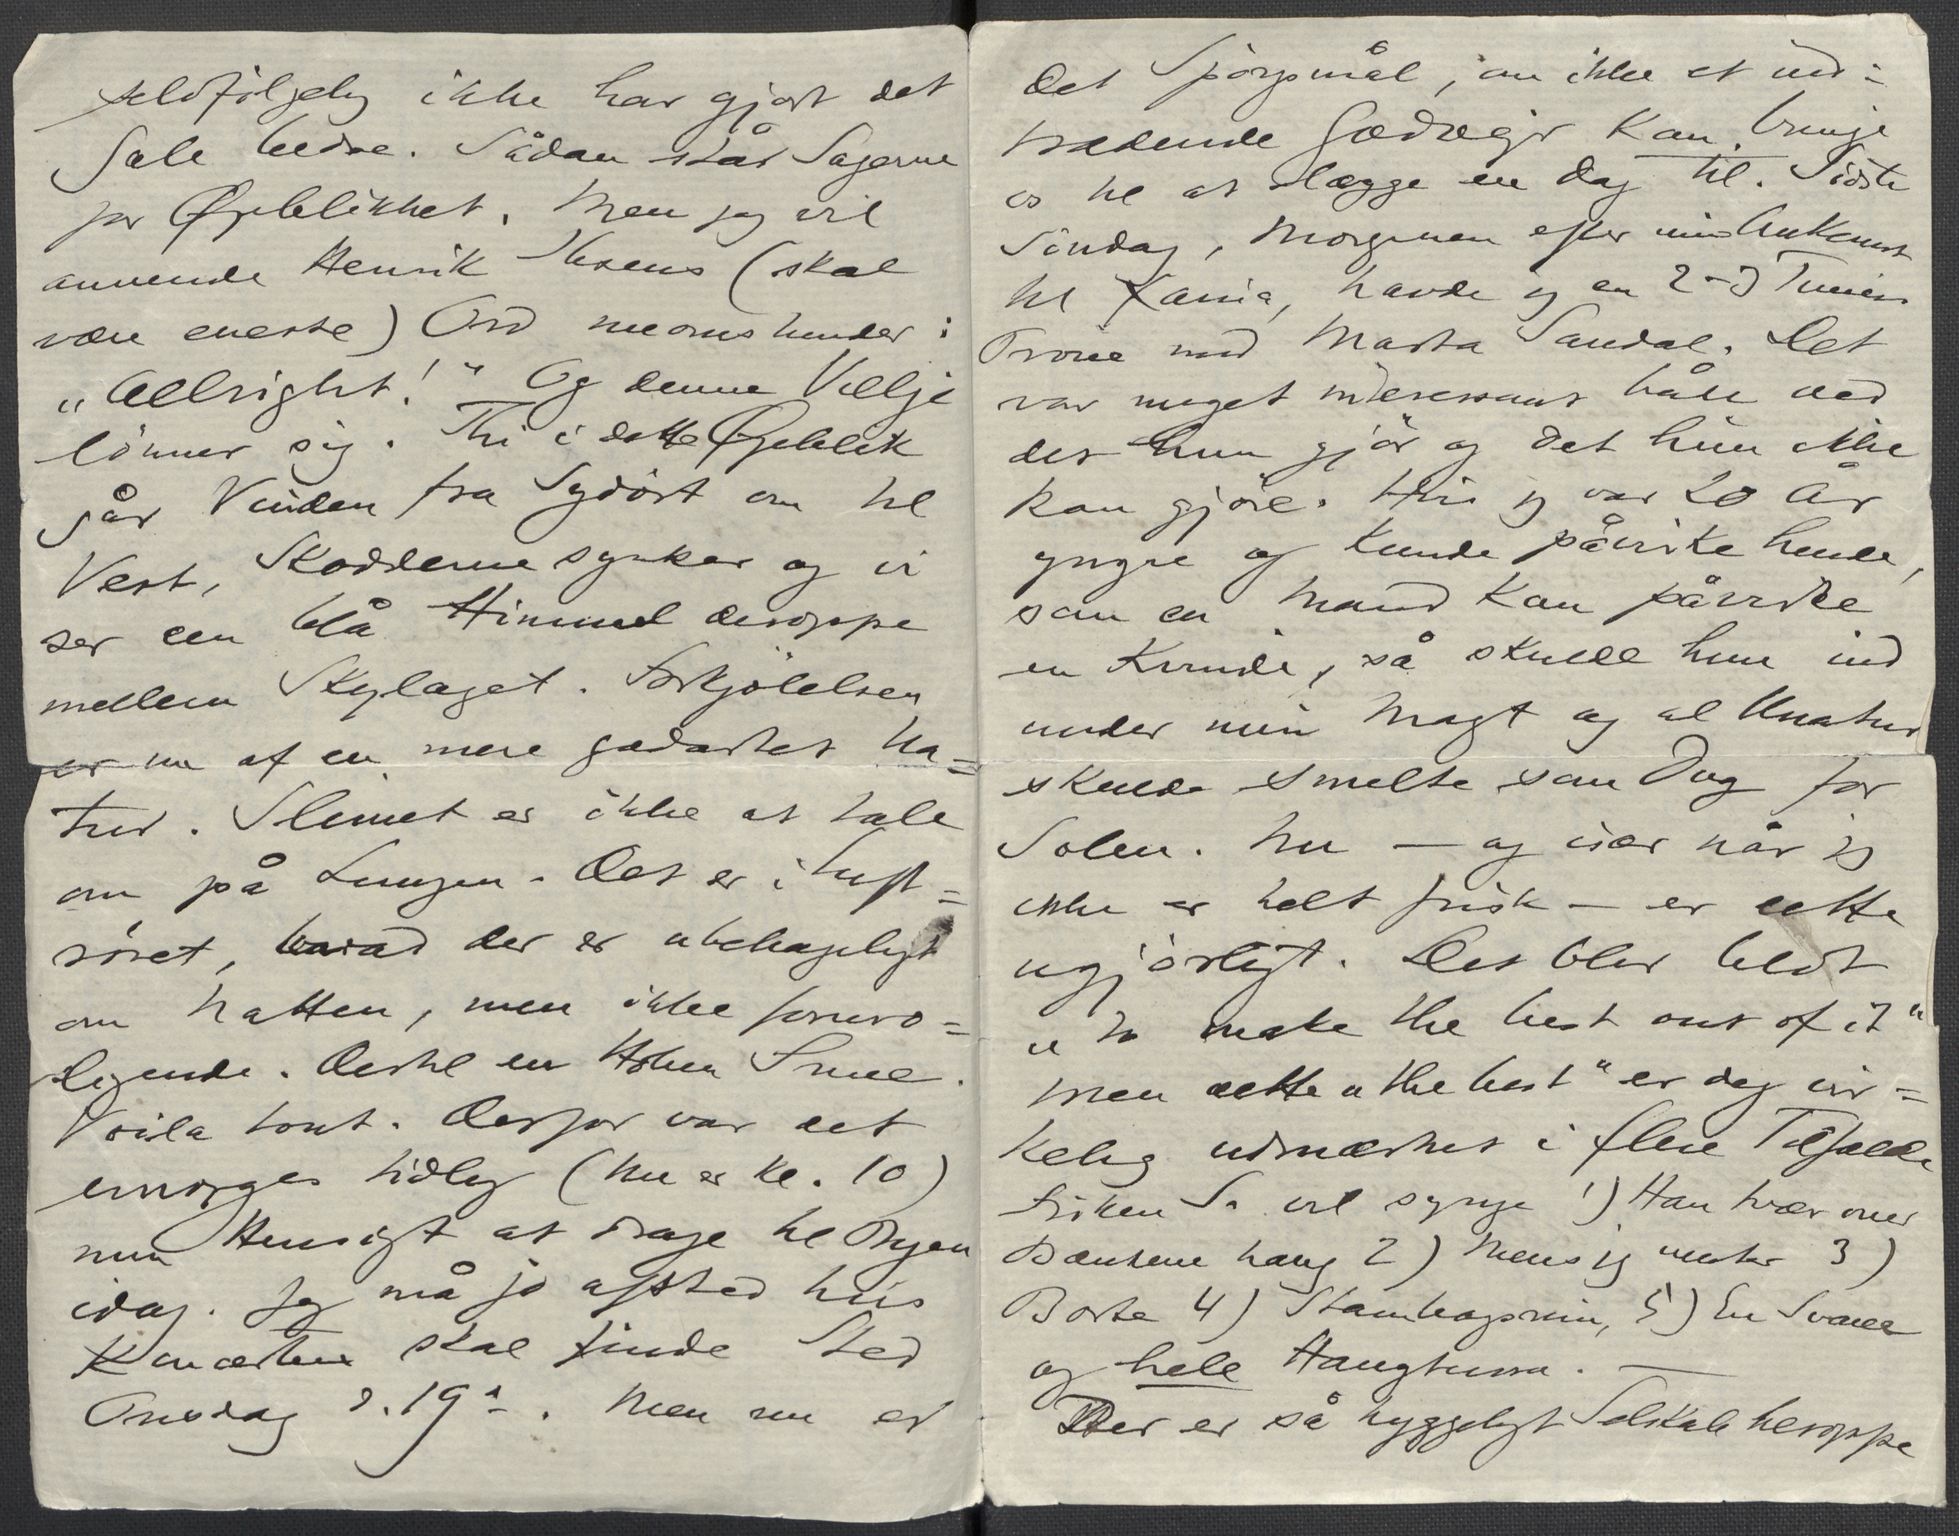 selvfölgelig ikke har gjort det
Gale bedre. Sådan står Sagerne
for Øjeblikket. Men jeg vil
anvende Henrik Ibsens (skal
være eneste) Ord
„Allright!" Og denne Villje
lönner sig. Thi i dette Øjeblik
går Vinden fra Sydöst om til
Vest, Skodderne synker og vi
ser den blå Himmel deroppe
mellem Skylaget. Forkjölelsen
er nu af en mere godartet Na=
tur. Slemt er ikke at tale
om på Lungen. Det er i Luft=
röret, hvad der er ubehageligt
om Natten, men ikke foruro=
ligende. Dertil en Smule.
Voila tout. Derfor var det
imorges tidlig (nu er kl. 10)
min Hensigt at drage til Byen
idag. Jeg må jo afsted hvis
Koncerten skal finde Sted
Onsdag d. 19de. Men nu er
det Spörgsmål, om ikke et ind=
trædende Godvejr kan bringe
os til at lægge en Dag til. Sidste
Söndag, Morgenen efter min Ankomst
til Xania, havde jeg en 2-3 Timers
Pröve med Marta Sandal. Det
var meget interessant både ved
det hun gjör og det hun ikke
kan gjöre. Hvis jeg var 20 År
yngre og kunde påvirke hende,
som en Mand kan påvirke
en Kvinde, så skulde hun ind
under min Magt og al Unatur
skulde smelte som Dug for
Solen. Nu — og især når jeg
ikke er helt frisk — er dette
ugjörligt. Det blev bedst
„to make the best out of it"
men dette „the best" er dog vir=
kelig udmærket i flere Tilfælde
Fröken S. vil synge 1) Han tvær over
Bænkene hang 2) Mens jeg venter 3)
Borte 4) Stambogsrim, 5) En Svane
og hele Haugtussa. —
Der er så hyggeligt Selskab heroppe